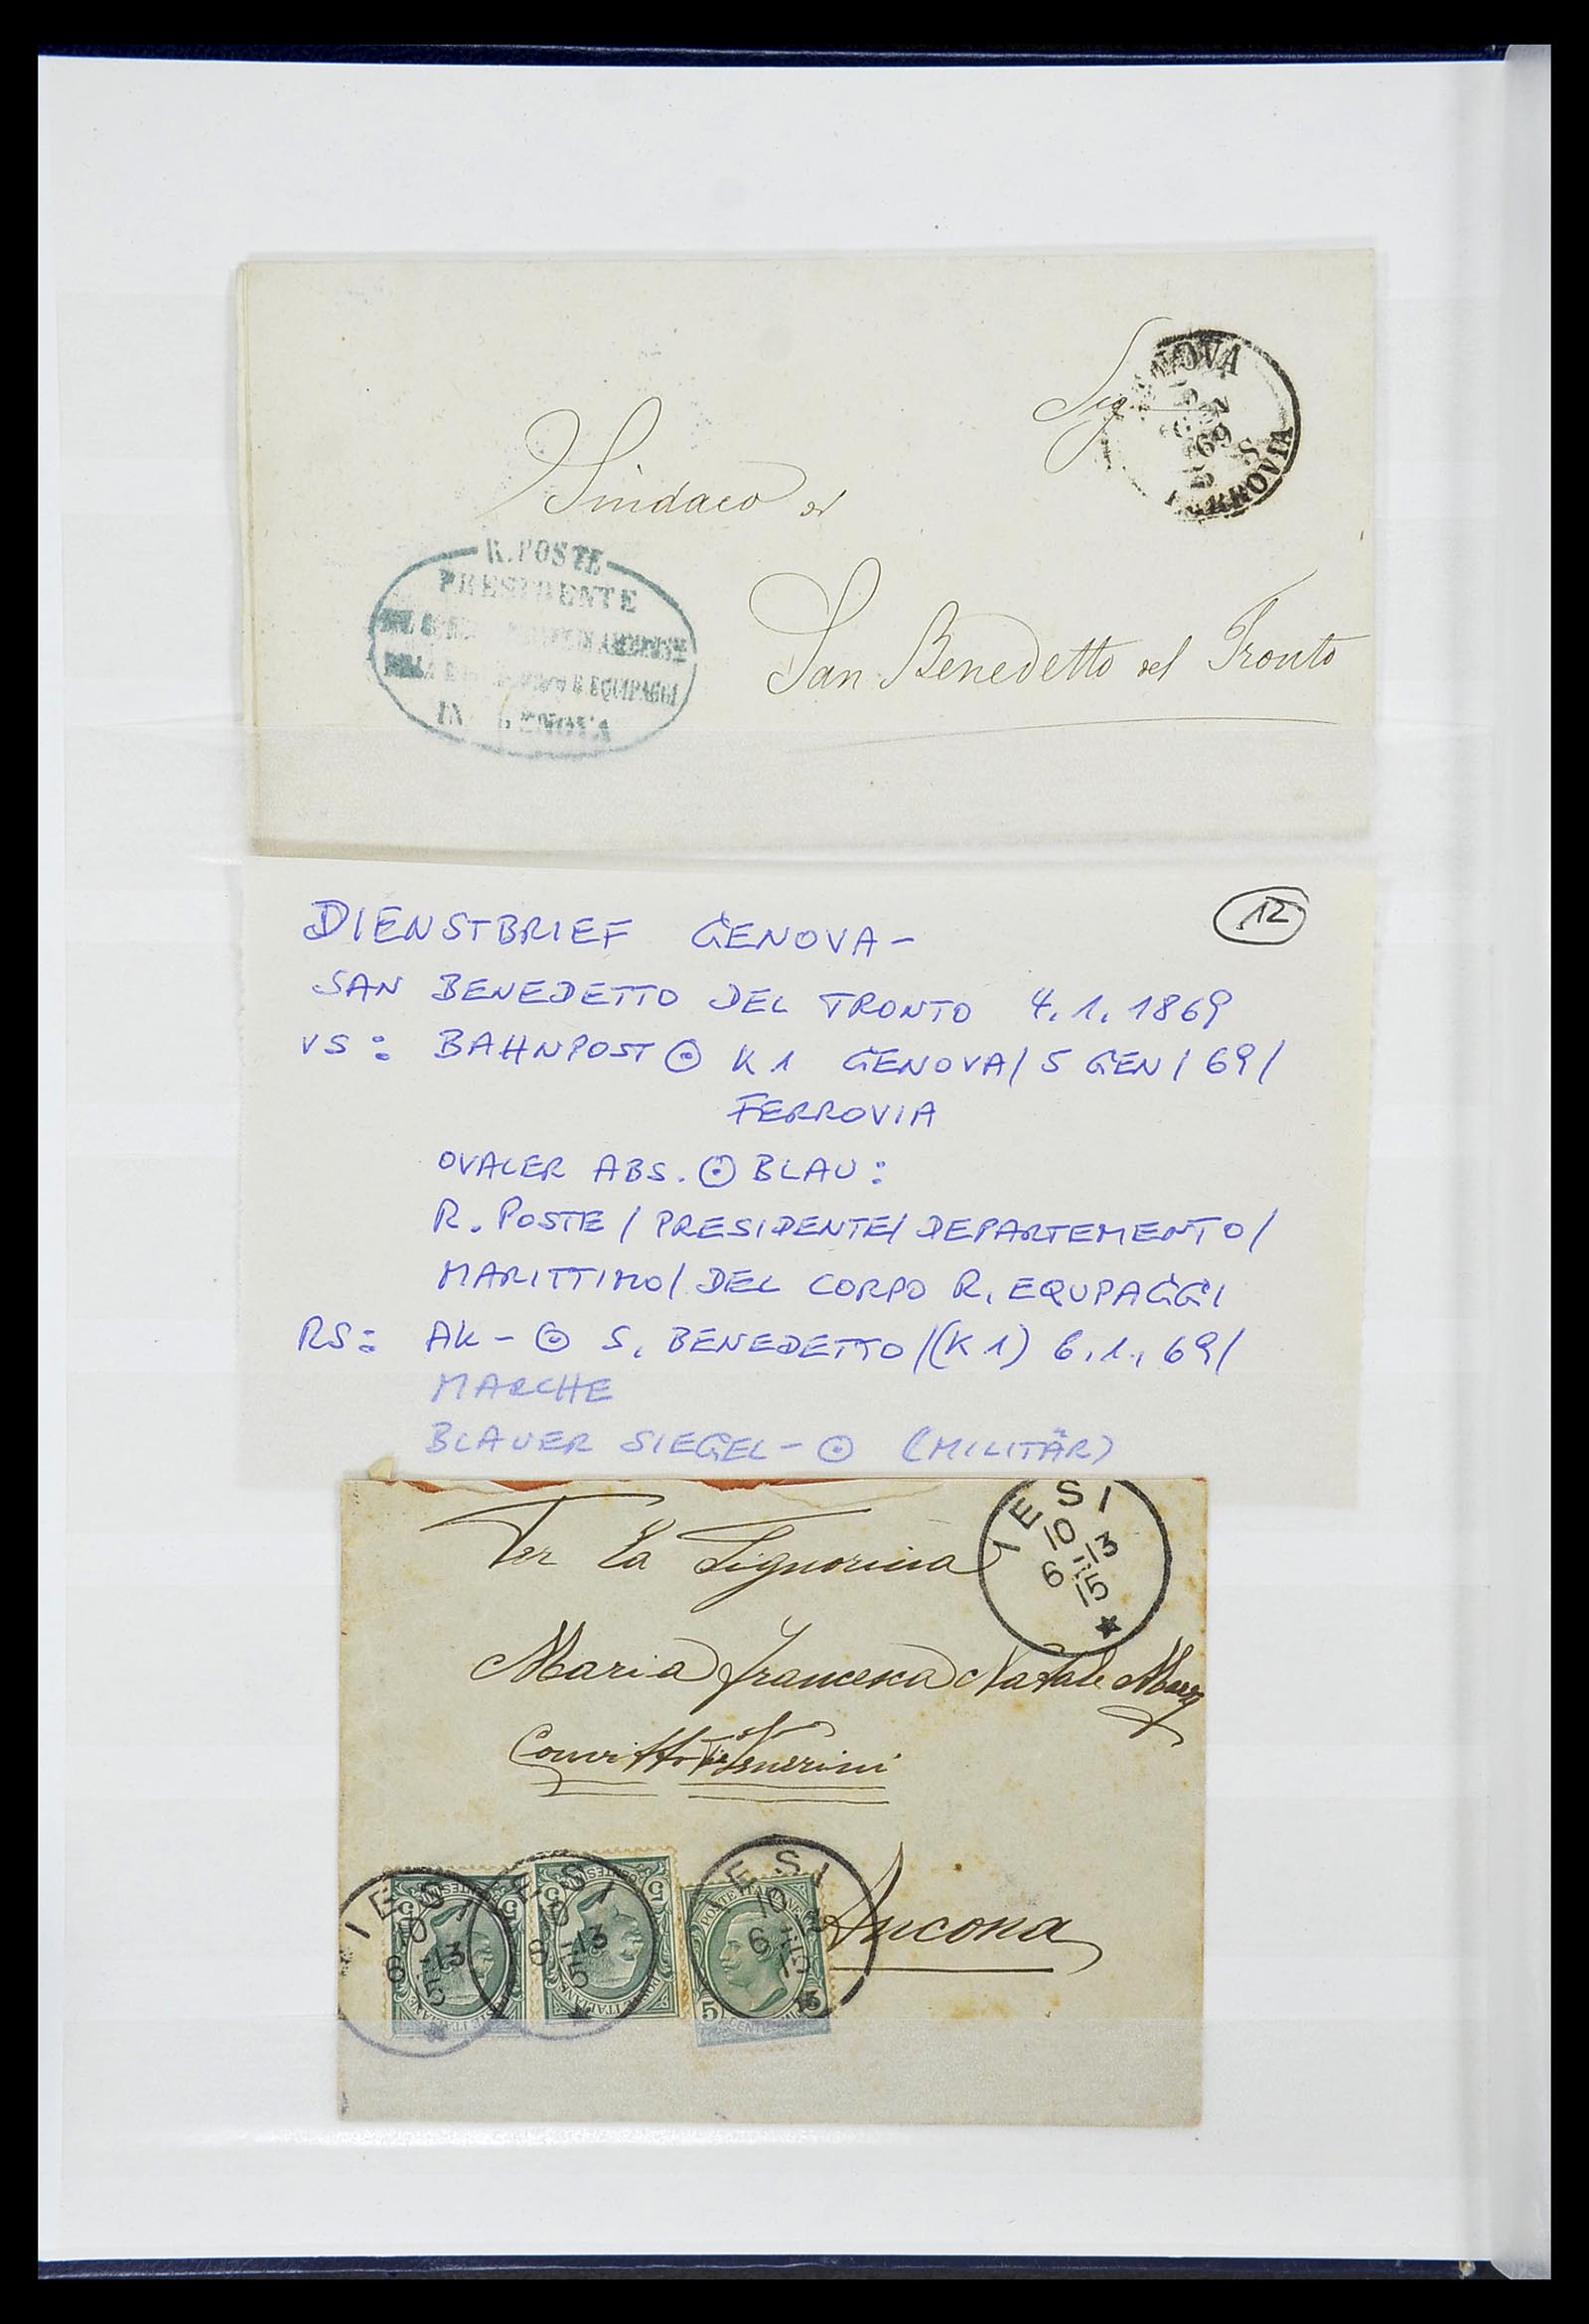 Sig
GENOVA
5
GEN
69
S
FERROVIA
Sindaco di
San Benedetto del Tronto
R. POSTE
PRESIDENTE
R EQUIPAGGI
IN GENOVA
DIENSTBRIEF GENOVA-
12
SAN BENEDETTO DEL TRONTO 4.1.1869
VS: BAHNPOST ⊙ K1 GENOVA/5 GEN/69/
FERROVIA
OVALER ABS. ⊙ BLAU:
R. POSTE/PRESIDENTE/DEPARTEMENTO/
MARITTIMO/DEL CORPO R. EQUPAGGI
RS: AK-⊙ S. BENEDETTO/(K1) 6.1.69/
MARCHE
BLAUER SIEGEL-⊙ (MILITÄR)
IESI
10
6-13
15
Per la Signorina
Maria Francesca Natale
Convitto Venerini
Ancona
IESI
10
6-13
15
IESI
10
6-13
15
IESI
10
6-13
15
POSTE ITALIANE
5
5
CENTESIMI
5
5
POSTE ITALIANE
POSTE ITALIANE
5
5